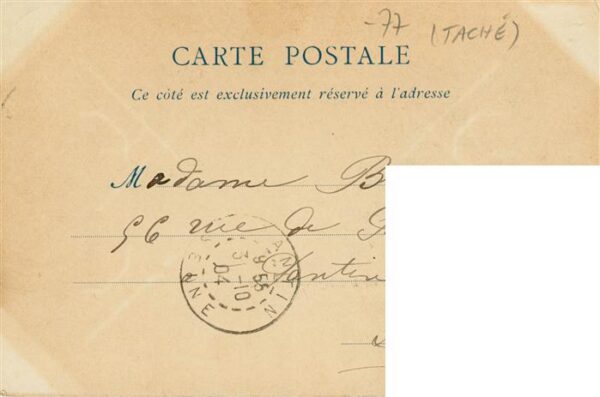 -77 (TACHÉ)
CARTE POSTALE
Ce côté est exclusivement réservé à l'adresse
Madame B
56 rue de
Pantin
PANTIN
SEINE
9 55
3 -10
04